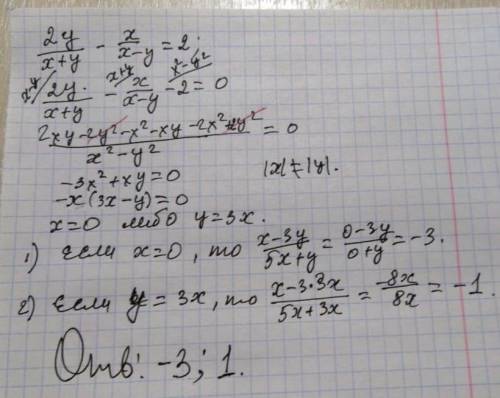 2y/(x+y) - x/(x-y) = 2.
x-y/ 2y/(x+y) - x+y/ x/(x-y) - x²-y²/ 2 = 0
(2xy-2y²-x²-xy-2x²+2y²)/(x²-y²) = 0
-3x²+xy=0 |x|≠|y|.
-x(3x-y)=0
x=0 либо y=3x.
1) Если x=0, то (x-3y)/(5x+y) = (0-3y)/(0+y) = -3.
2) Если y=3x, то (x-3·3x)/(5x+3x) = -8x/8x = -1.
Отв: -3; 1.